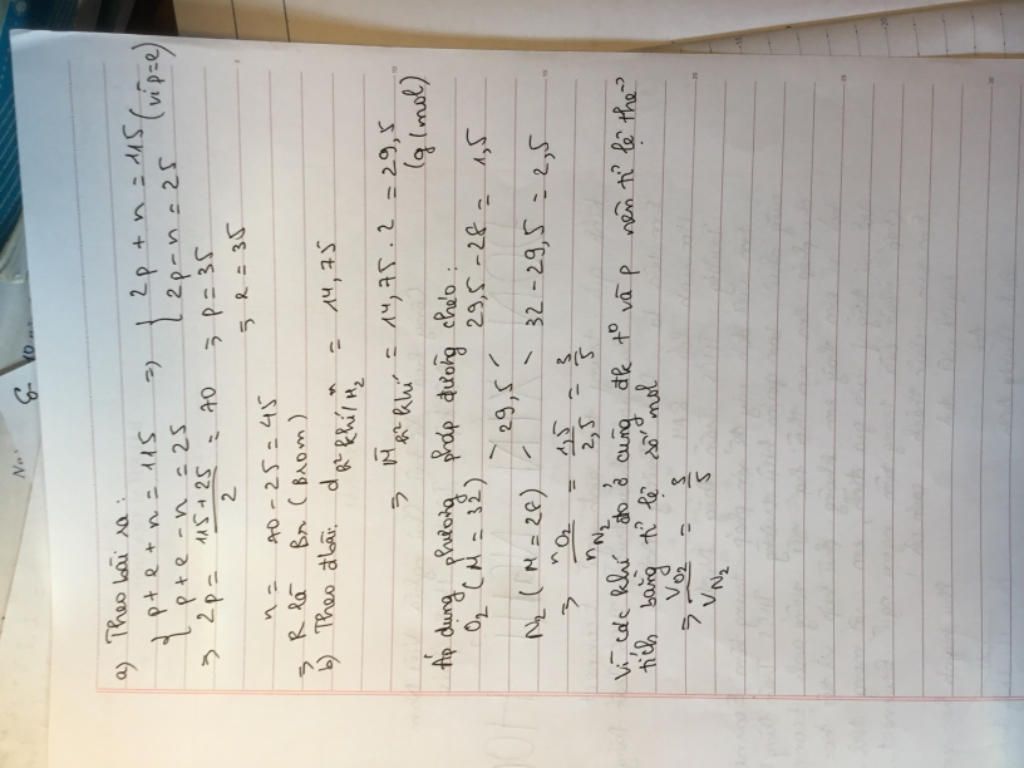 a) Theo bài ra:
{ p + e + n = 115 => { 2p + n = 115 (vì p=e)
p + e - n = 25 2p - n = 25
=> 2p = 115 + 25 / 2 = 70 => p = 35
=> e = 35
n = 70 - 25 = 45
=> R là Br (Brom)
b) Theo đbài: d h² khí/H₂ = 14,75
=> M̄ h² khí = 14,75 . 2 = 29,5
(g/mol)
Áp dụng phương pháp đường chéo:
O₂ (M = 32) 29,5 - 28 = 1,5
29,5
N₂ (M = 28) 32 - 29,5 = 2,5
=> nO₂ / nN₂ = 1,5 / 2,5 = 3 / 5
Vì các khí đo ở cùng đk t° và p nên tỉ lệ thể
tích bằng tỉ lệ số mol
=> VO₂ / VN₂ = 3 / 5